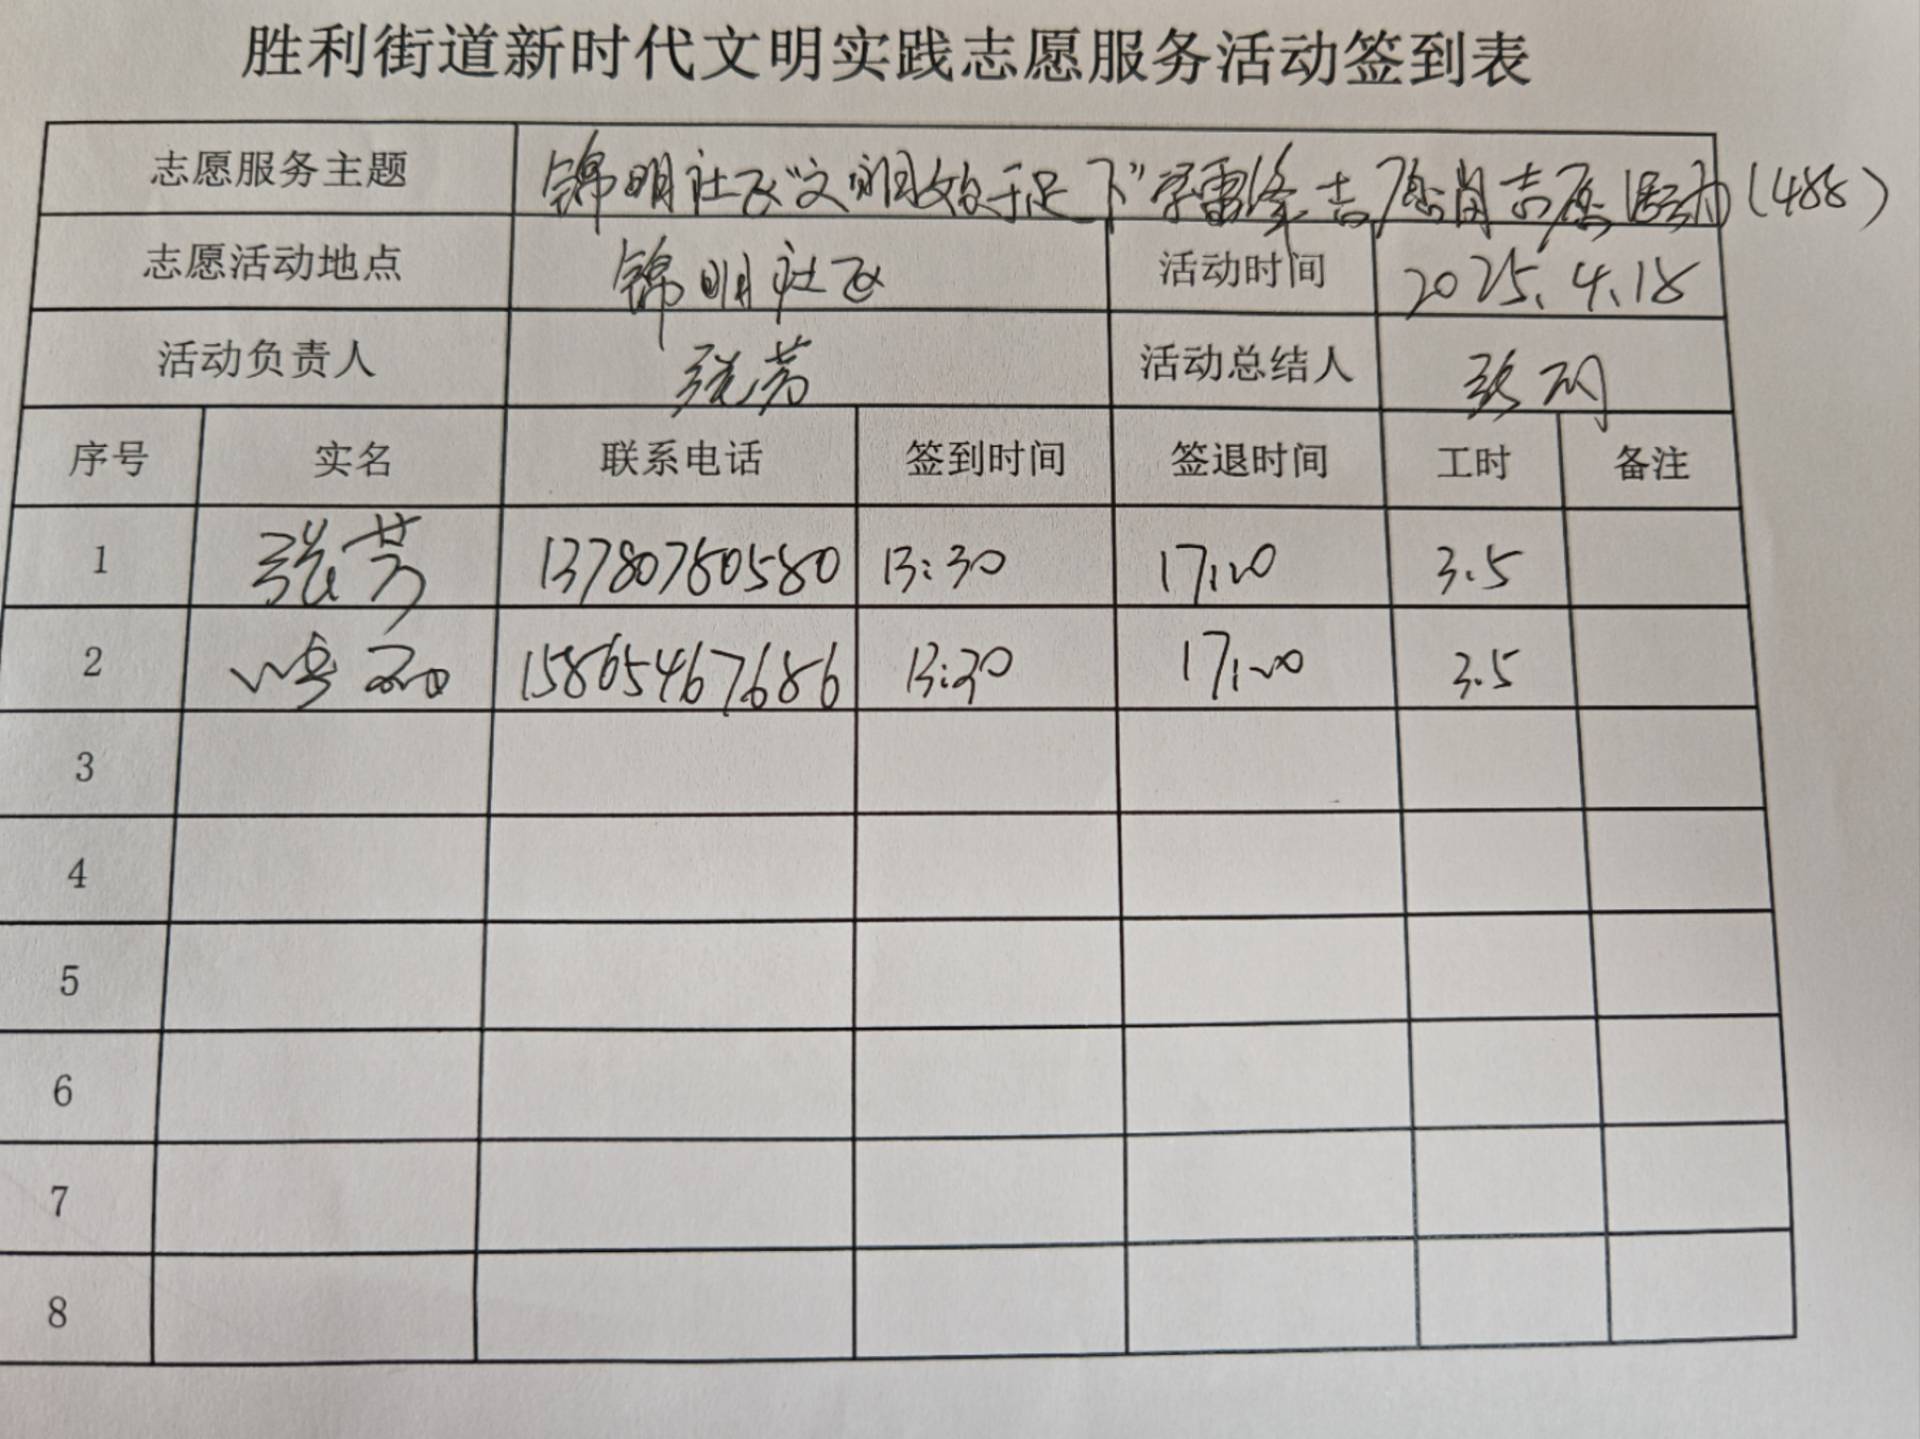 胜利街道新时代文明实践志愿服务活动签到表
志愿服务主题 锦明社区"文明始于足下"学雷锋志愿者志愿活动(488)
志愿活动地点 锦明社区 活动时间 2025.4.18
活动负责人 张芳 活动总结人
序号 实名 联系电话 签到时间 签退时间 工时 备注
1 张芳 13780750580 13:30 17:00 3.5
2 15865467686 13:30 17:00 3.5
3
4
5
6
7
8